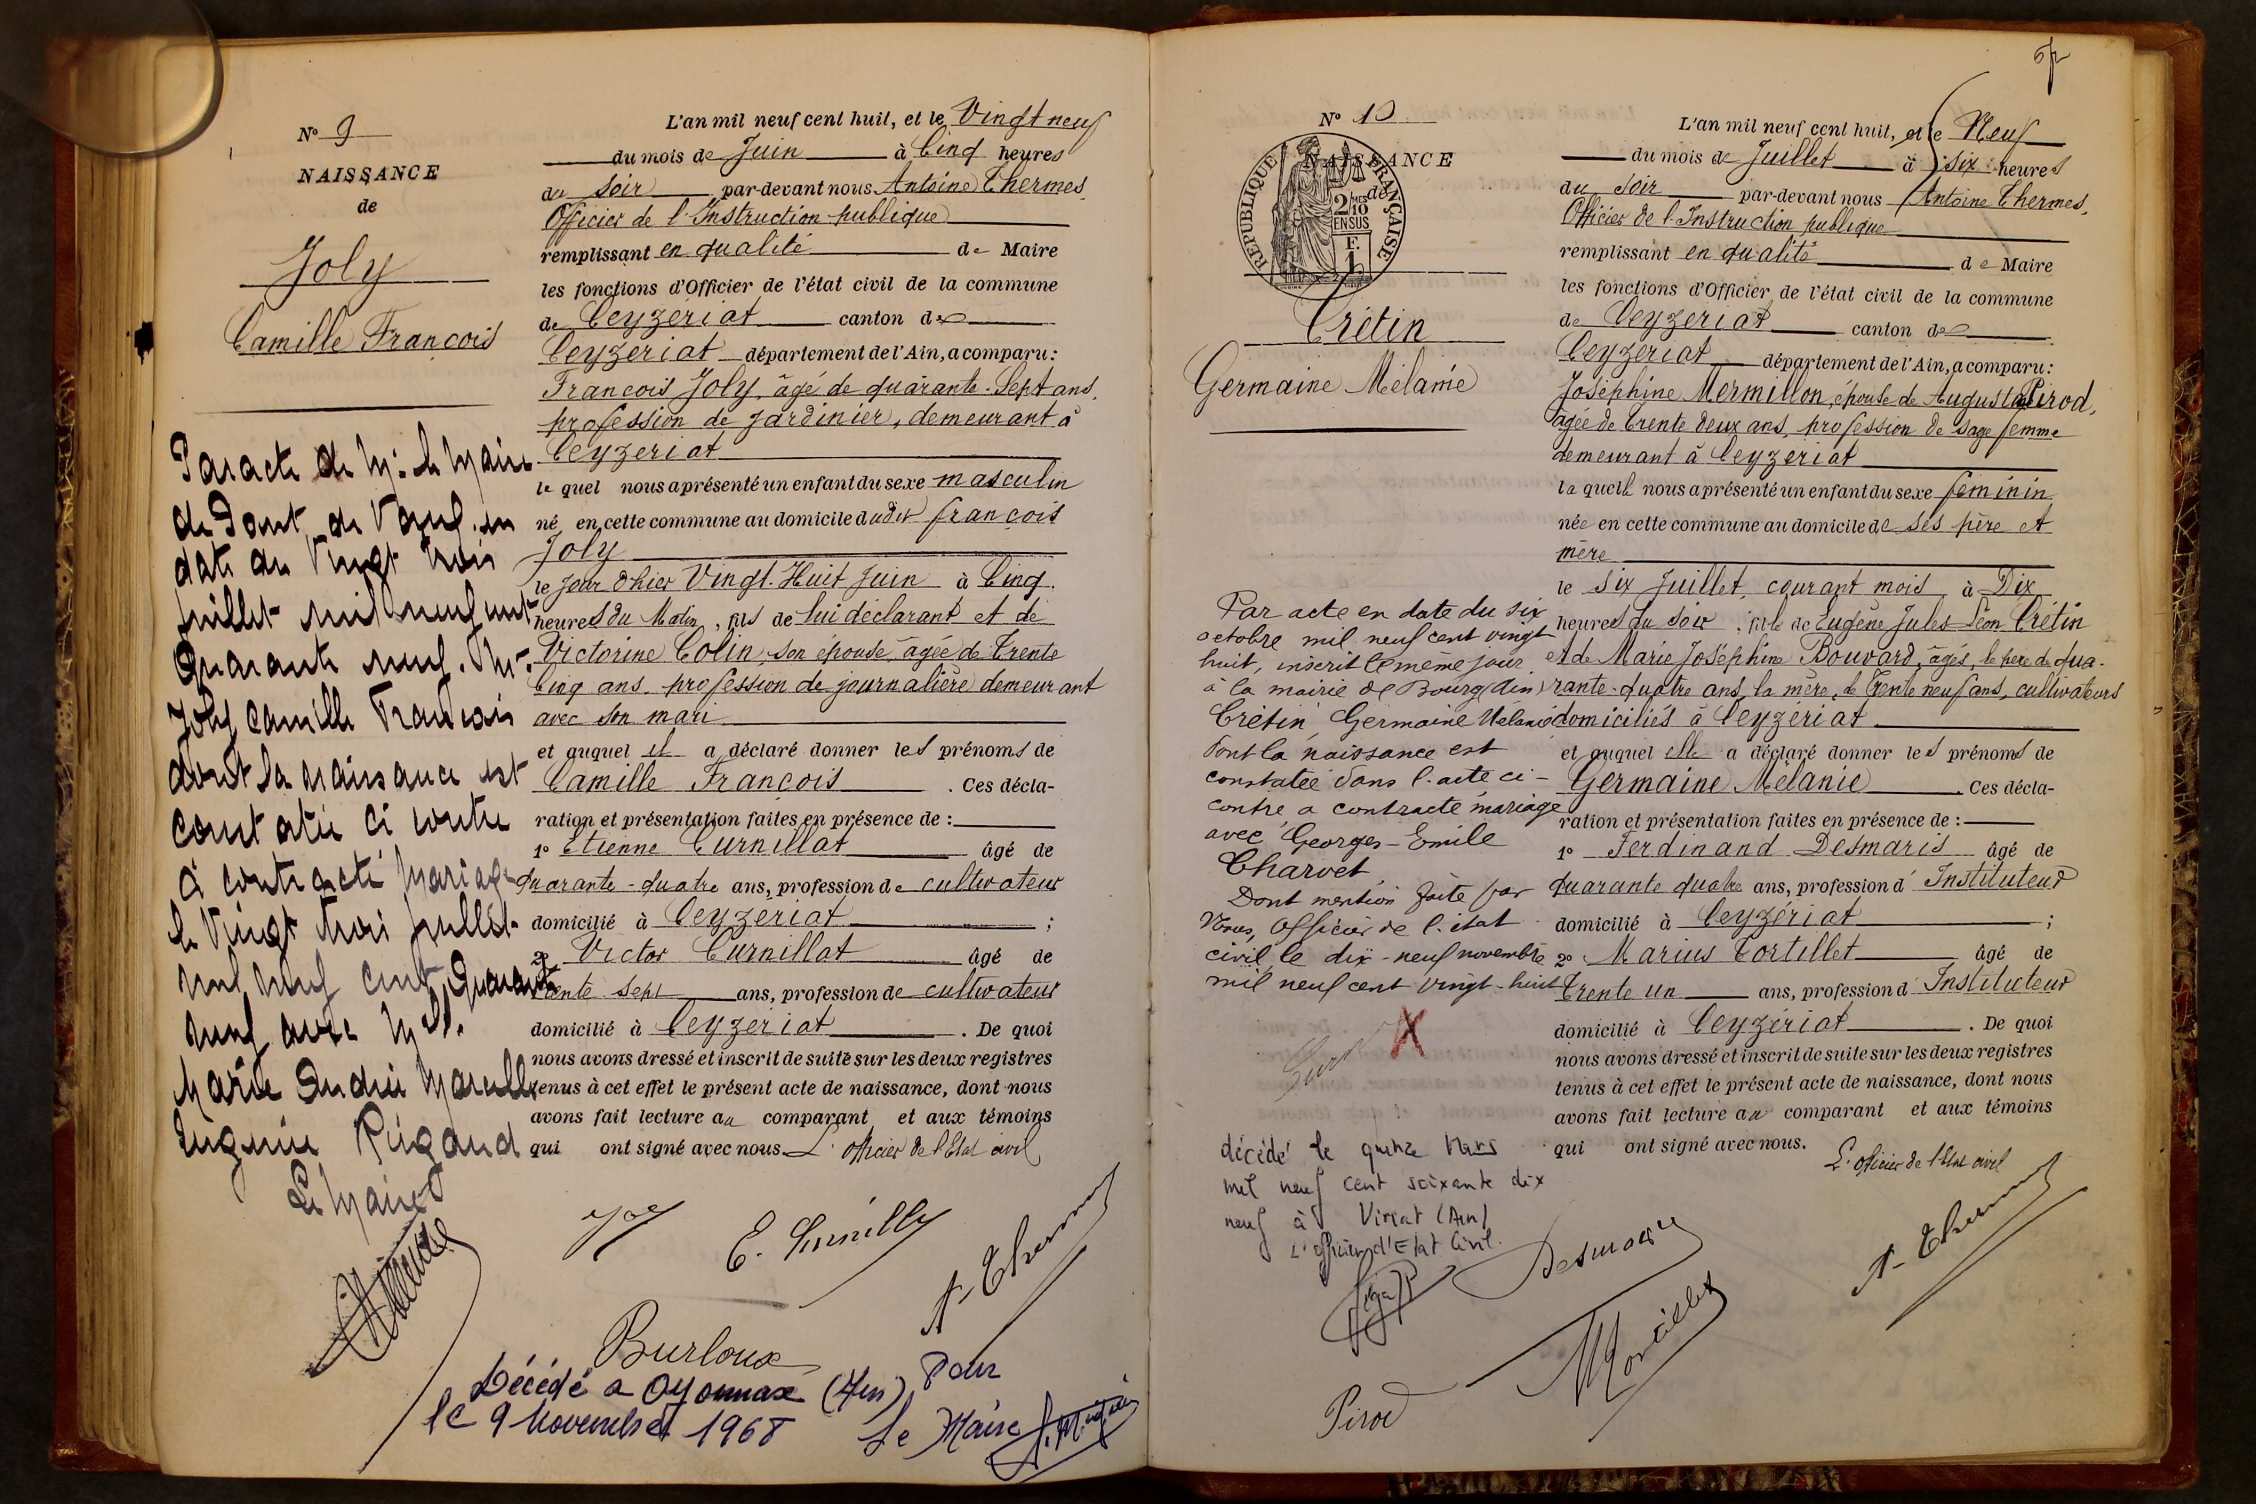 N° 9
NAISSANCE
de
Joly
Camille François
L'an mil neuf cent huit, et le Vingt neuf
du mois de Juin à Cinq heures
du soir par-devant nous Antoine Thermes,
Officier de l'Instruction publique
remplissant en qualité de Maire
les fonctions d'Officier de l'état civil de la commune
de Ceyzériat canton de
Ceyzériat département de l'Ain, a comparu:
François Joly, âgé de quarante-Sept ans,
profession de jardinier, demeurant à
Ceyzériat
le quel nous a présenté un enfant du sexe masculin
né en cette commune au domicile dudit François
Joly
le jour d'hier Vingt-Huit Juin à Cinq
heures du Matin, fils de lui déclarant et de
Victorine Colin, son épouse, âgée de Trente
Cinq ans, profession de journalière demeurant
avec son mari
et auquel il a déclaré donner les prénoms de
Camille François. Ces décla-
ration et présentation faites en présence de :
1° Etienne Curnillat âgé de
quarante-quatre ans, profession de cultivateur
domicilié à Ceyzériat ;
2° Victor Curnillat âgé de
trente sept ans, profession de cultivateur
domicilié à Ceyzériat. De quoi
nous avons dressé et inscrit de suite sur les deux registres
tenus à cet effet le présent acte de naissance, dont nous
avons fait lecture au comparant et aux témoins
qui ont signé avec nous. L'officier de l'Etat civil
Par acte de M. le Maire
de Pont de Vaux en
date du Vingt trois
juillet mil neuf cent
Quarante neuf. Mr.
Joly Camille François
dont la naissance est
constatée ci contre
a contracté mariage
le Vingt trois juillet
mil neuf cent Quarante
neuf avec Mlle.
Marie Andrée Marcelle
Eugénie Rigaud
Le Maire
Joly
A. Thermes
Burloux
Décédé à Oyonnax (Ain)
le 9 Novembre 1968
Pour
Le Maire
N° 10
NAISSANCE
de
REPUBLIQUE FRANÇAISE
2/10 EN SUS
F.
1
Crétin
Germaine Mélanie
L'an mil neuf cent huit, et le Neuf
du mois de Juillet à six heures
du soir par-devant nous Antoine Thermes,
Officier de l'Instruction publique
remplissant en qualité de Maire
les fonctions d'Officier de l'état civil de la commune
de Ceyzériat canton de
Ceyzériat département de l'Ain, a comparu:
Joséphine Mermillon, épouse de Auguste Pirod,
âgée de trente deux ans, profession de sage femme
demeurant à Ceyzériat
la quelle nous a présenté un enfant du sexe féminin
née en cette commune au domicile de ses père et
mère
le six Juillet, courant mois à Dix
heures du soir, fille de Eugène Jules Léon Crétin
et de Marie Joséphine Bouvard, âgés, le père de qua-
rante-quatre ans, la mère, de Trente neuf ans, cultivateurs
domiciliés à Ceyzériat
et auquel elle a déclaré donner les prénoms de
Germaine Mélanie. Ces décla-
ration et présentation faites en présence de :
1° Ferdinand Desmaris âgé de
quarante quatre ans, profession d'Instituteur
domicilié à Ceyzériat ;
2° Marius Tortillet âgé de
Trente un ans, profession d'Instituteur
domicilié à Ceyzériat. De quoi
nous avons dressé et inscrit de suite sur les deux registres
tenus à cet effet le présent acte de naissance, dont nous
avons fait lecture au comparant et aux témoins
qui ont signé avec nous.
L'officier de l'Etat civil
Par acte en date du six
octobre mil neuf cent vingt
huit, inscrit le même jour
à la mairie de Bourg (Ain)
Crétin, Germaine Mélanie
dont la naissance est
constatée dans l'acte ci-
contre a contracté mariage
avec Georges-Emile
Charvet
Dont mention faite par
Nous, Officier de l'état
civil le dix-neuf novembre
mil neuf cent vingt-huit
X
décédé le quinze Mars
mil neuf cent soixante dix
neuf à Viriat (Ain)
L'officier d'Etat Civil.
Desmaris
A. Thermes
M Tortillet
Pirod